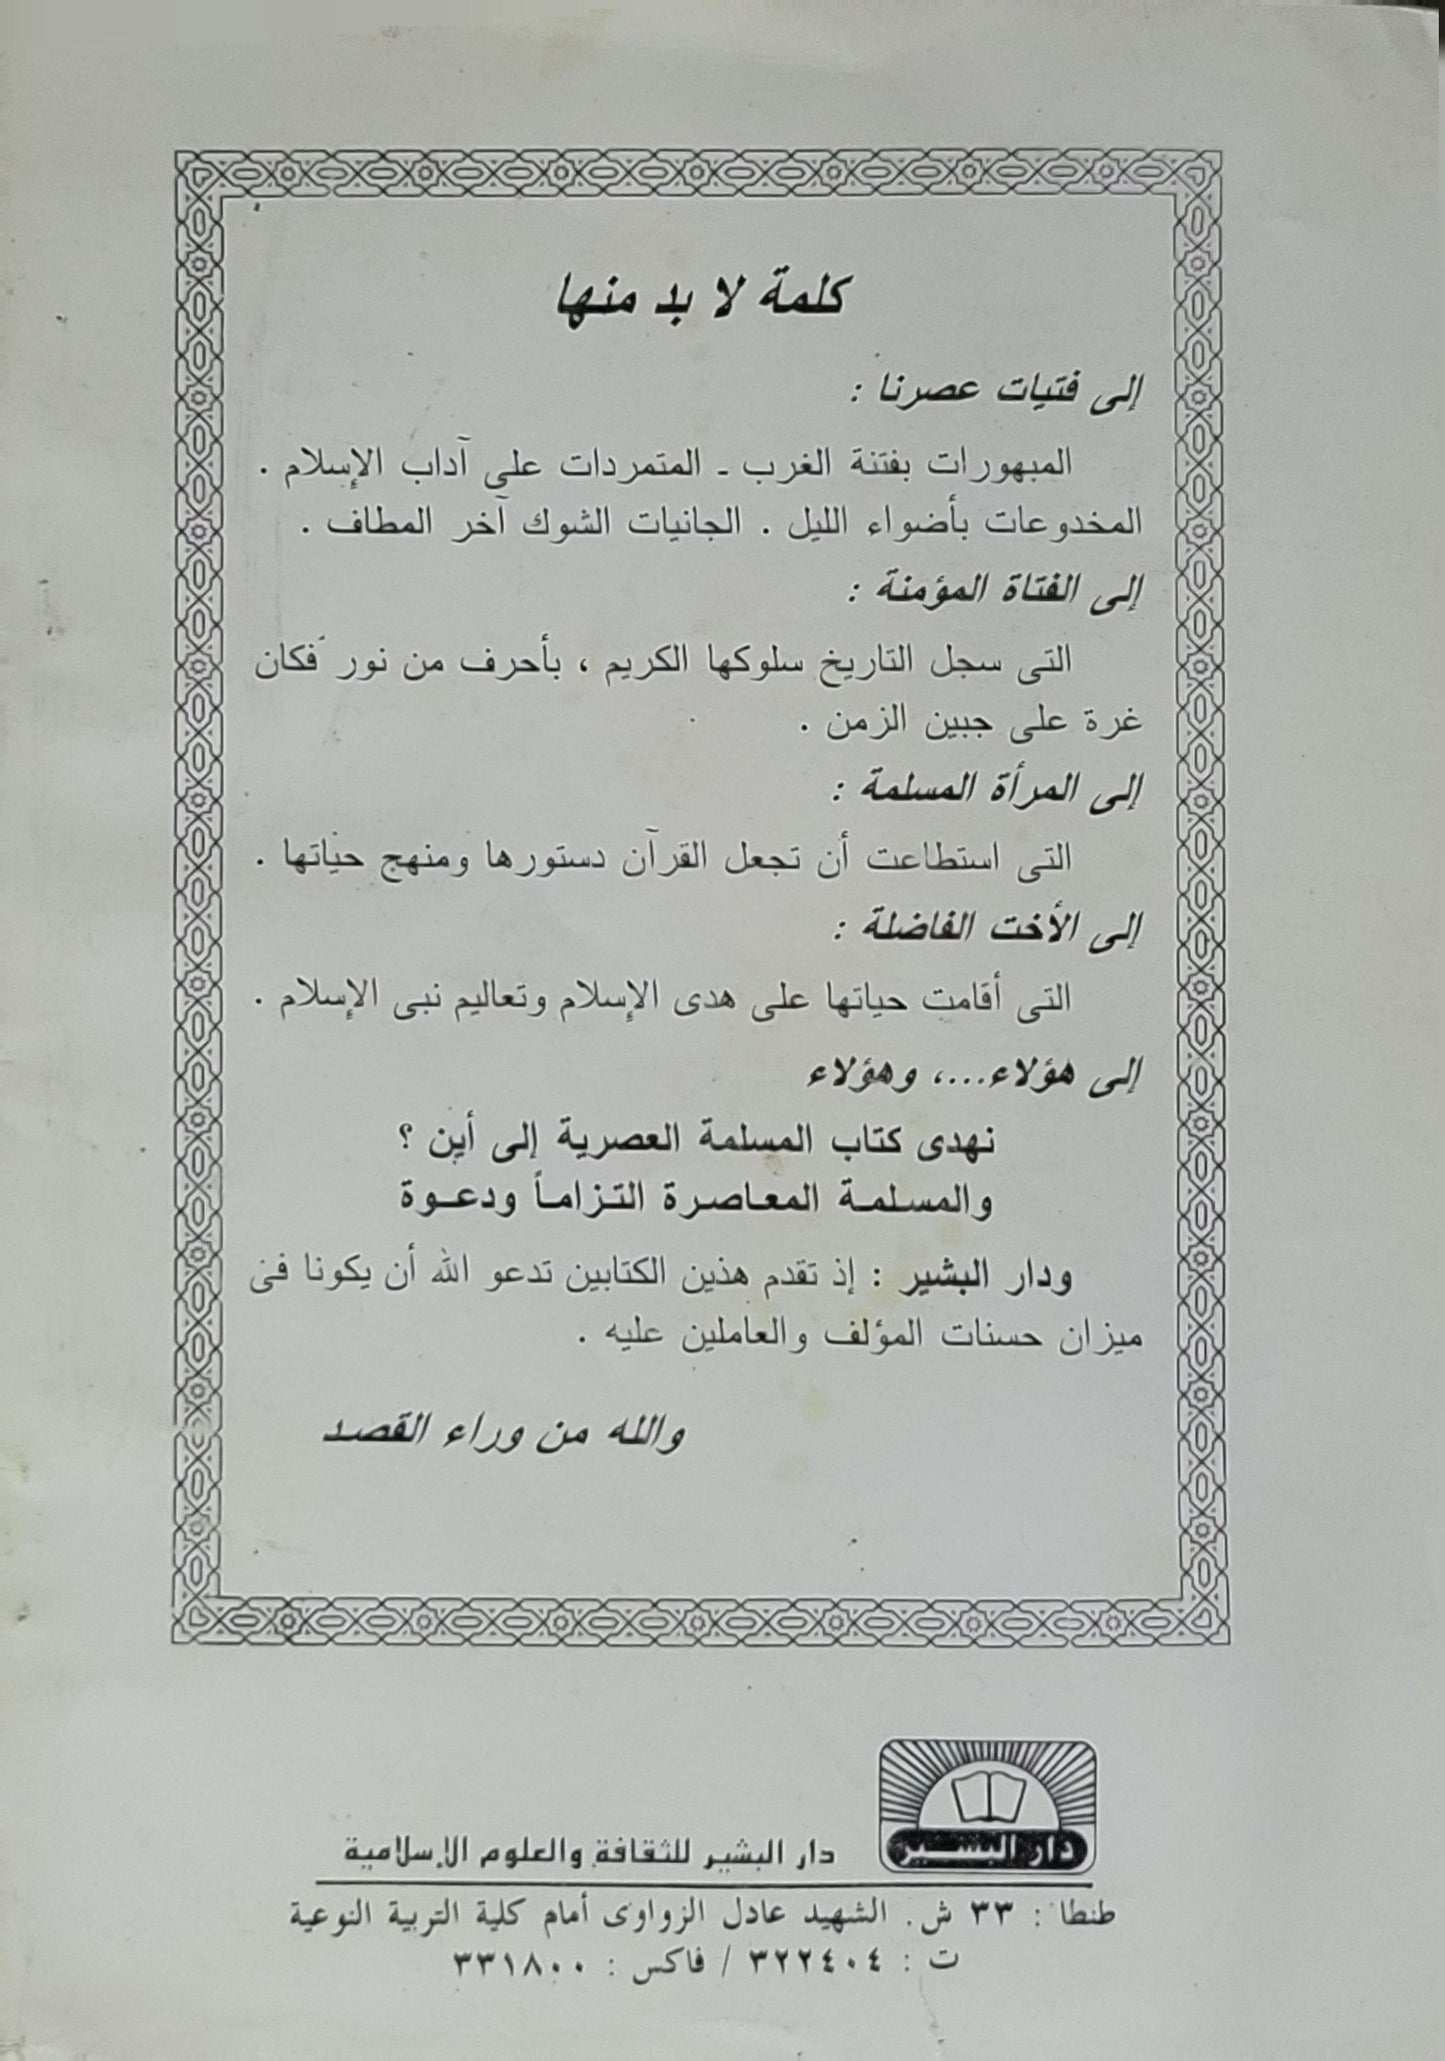 كلمة لا بد منها
إلى فتيات عصرنا :
المبهورات بفتنة الغرب ـ المتمردات على آداب الإسلام .
المخدوعات بأضواء الليل . الجانيات الشوك آخر المطاف .
إلى الفتاة المؤمنة :
التى سجل التاريخ سلوكها الكريم ، بأحرف من نور فكان
غرة على جبين الزمن .
إلى المرأة المسلمة :
التى استطاعت أن تجعل القرآن دستورها ومنهج حياتها .
إلى الأخت الفاضلة :
التى أقامت حياتها على هدى الإسلام وتعاليم نبى الإسلام .
إلى هؤلاء...، وهؤلاء
نهدى كتاب المسلمة العصرية إلى أين ؟
والمسلمة المعاصرة التزاماً ودعوة
ودار البشير : إذ تقدم هذين الكتابين تدعو الله أن يكونا فى
ميزان حسنات المؤلف والعاملين عليه .
والله من وراء القصد
دار البشير
دار البشير للثقافة والعلوم الإسلامية
طنطا : ٣٣ ش. الشهيد عادل الزواوى أمام كلية التربية النوعية
ت : ٣٢٢٤٠٤ / فاكس : ٣٣١٨٠٠